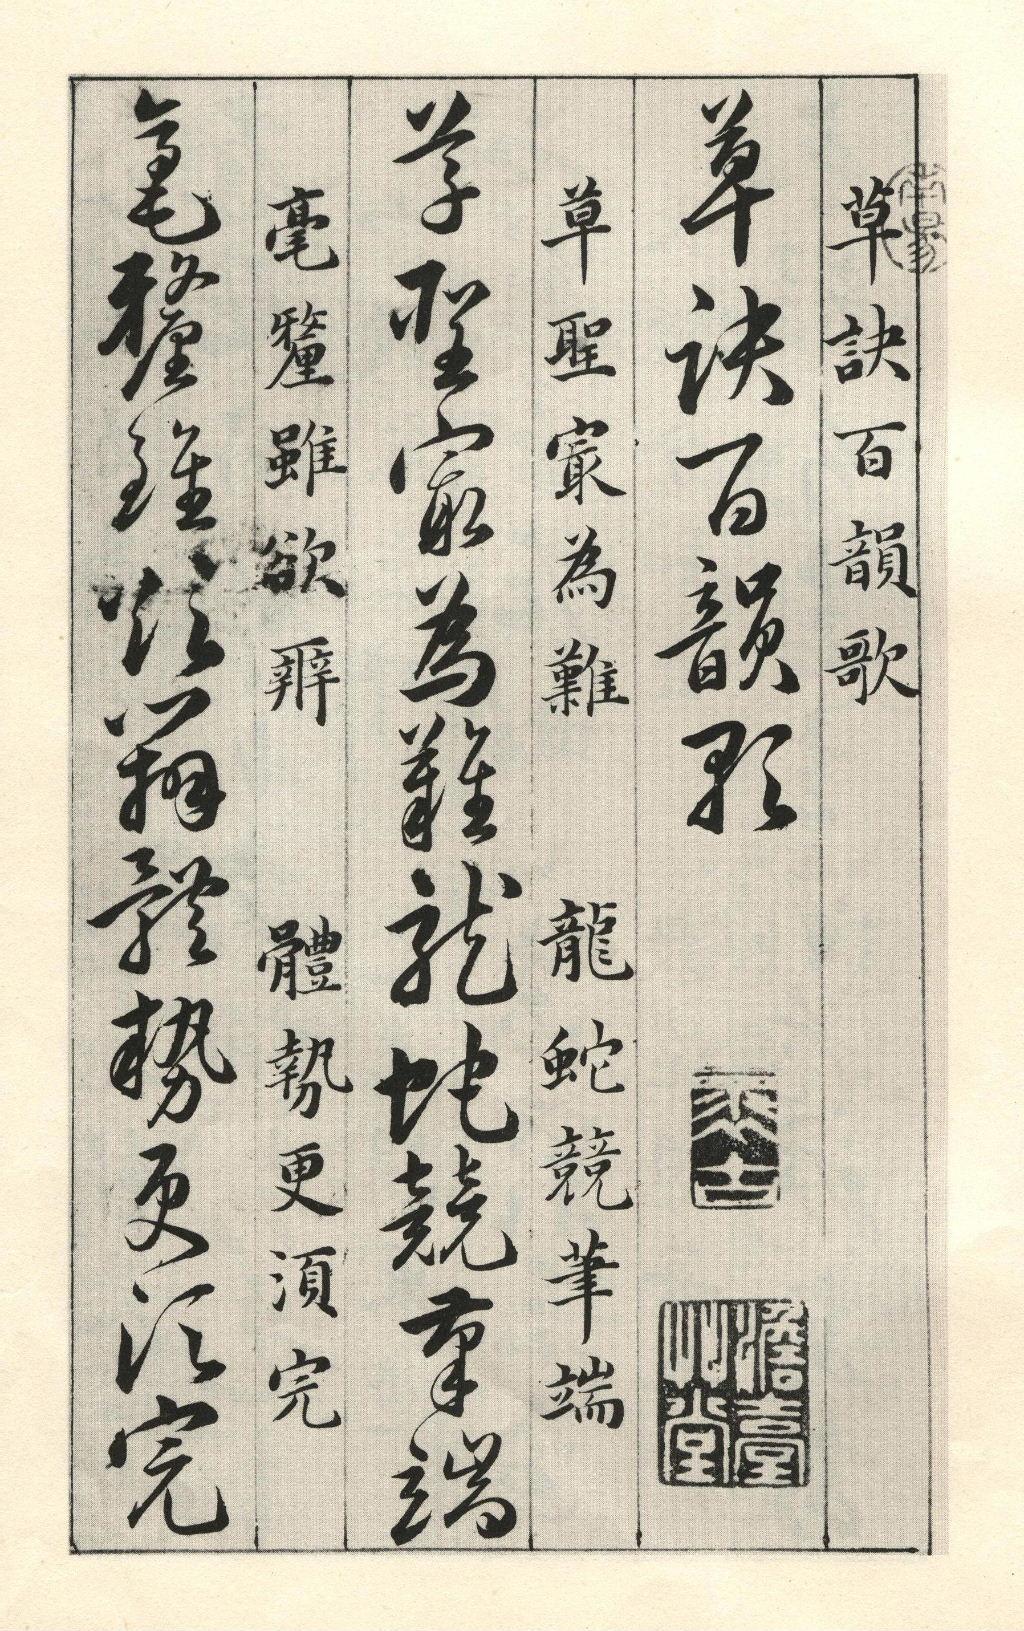 草訣百韻歌
草訣百韻歌
草聖寂為難　龍蛇競筆端
草聖寂為難龍蛇競筆端
毫釐雖欲辨　體勢更須完
毫釐雖欲辨體勢更須完